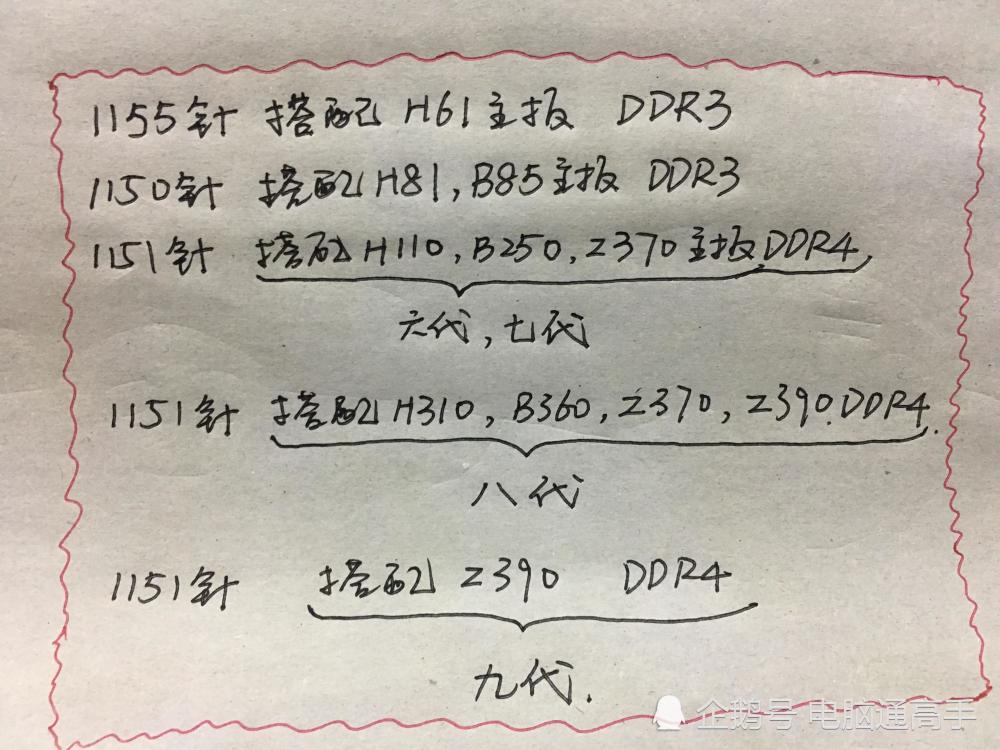 1155针 搭配 H61主板 DDR3
1150针 搭配H81,B85主板 DDR3
1151针 搭配H110,B250,Z370主板DDR4,
六代,七代
1151针 搭配H310,B360,Z370,Z390.DDR4.
八代
1151针 搭配 Z390 DDR4
九代.
企鹅号 电脑通高手